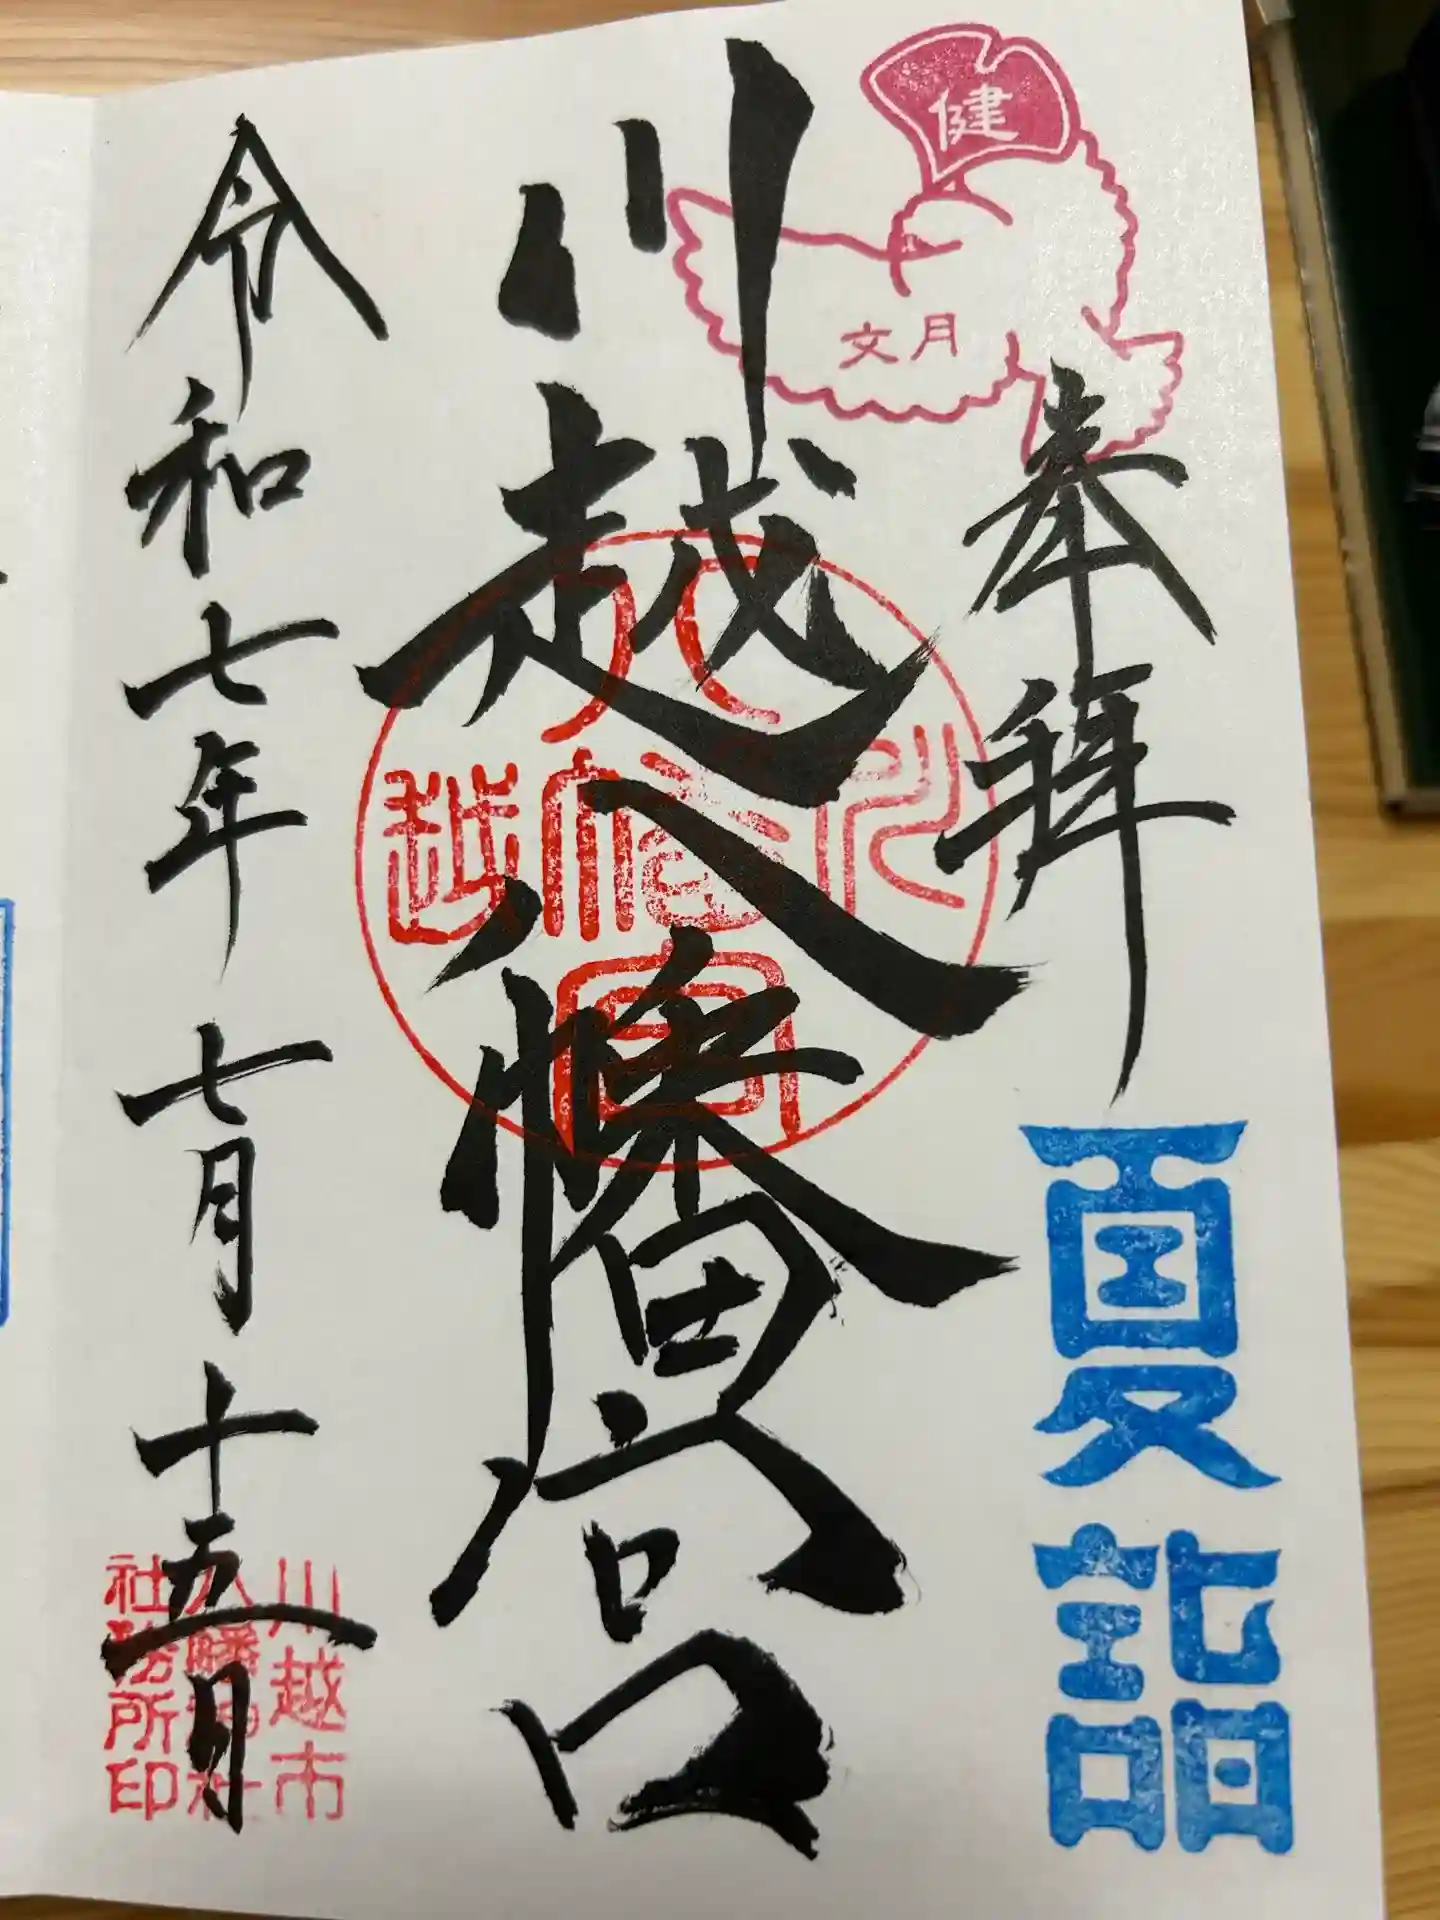 健
文月
奉拝
夏詣
川越八幡宮
川越
八幡宮
令和七年七月十五日
川越市
八幡神社
社務所印